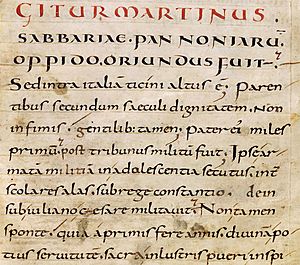 GITUR MARTINUS.
SABBARIAE. PANNONIARŪ.
OPPIDO. ORIUNDUS FUIT.
Sed intra italiā ticini altus ē; Paren
tibus secundum saeculi dignitatem. Non
infimis. gentilib; tamen; Pater ei miles
primū. post tribunus militū fuit; Ipse ar
matā militiā in adolescentia secutus. int
scolares alas. sub rege constantio. dein
sub iuliano cęsare militavit; Non tamen
sponte. quia a primis fere annis. divinā po
tius servitutē. sacra inlustris pueri inspi